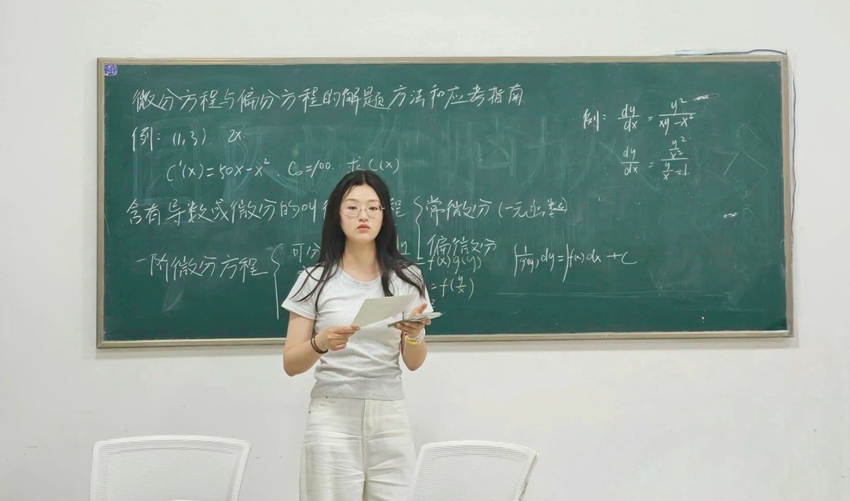 微分方程与偏分方程的解题方法和应考指南
例: (1,3). 2x
C'(x)=50x-x². C₀=100. 求C(x)
含有导数或微分的叫 程 { 常微分 (一元函数)
偏微分
一阶微分方程 { 可分 y
=f(x)g(y)
=f(y/x)
例: dy/dx = y²/(xy-x²)
dy/dx = (y²/x²)/(y/x-1)
dy=∫f(x)dx+C